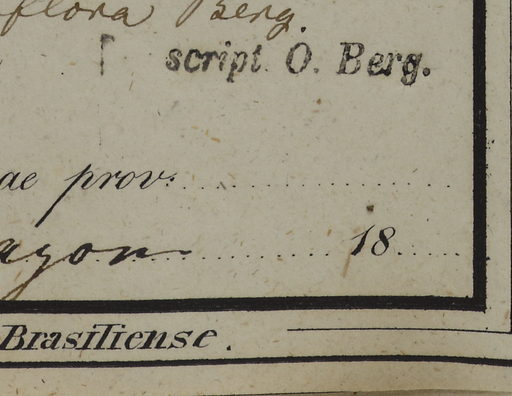 flora Berg.
script O. Berg.
ae prov:
agon 18
Brasiliense.